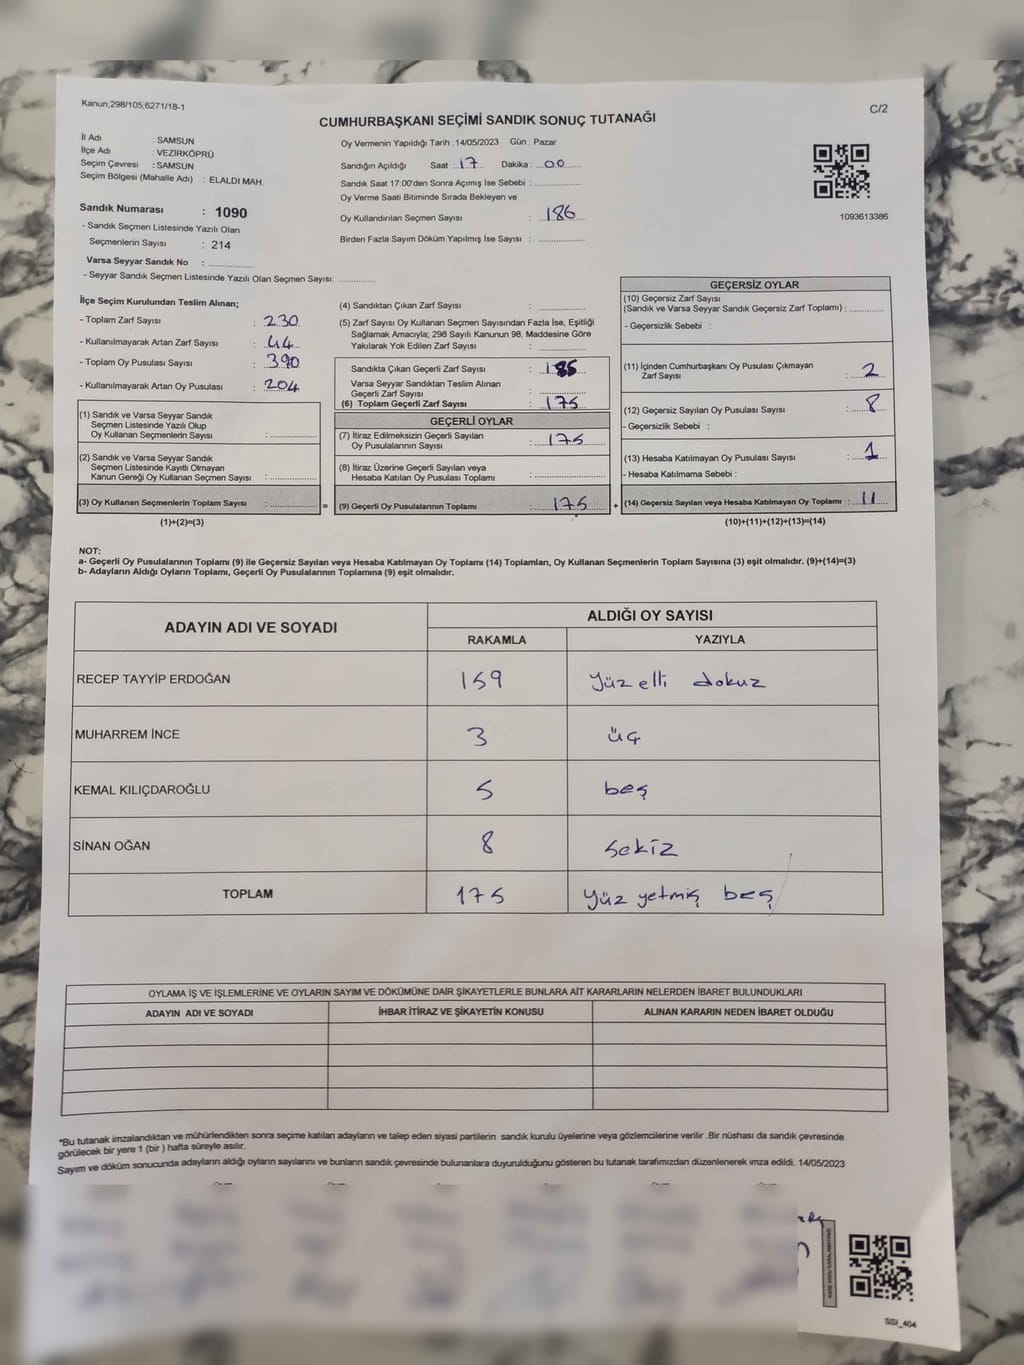 Kanun;298/105;6271/18-1
C/2
CUMHURBAŞKANI SEÇİMİ SANDIK SONUÇ TUTANAĞI
İl Adı : SAMSUN
İlçe Adı : VEZİRKÖPRÜ
Seçim Çevresi : SAMSUN
Seçim Bölgesi (Mahalle Adı) : ELALDI MAH.
Sandık Numarası : 1090
- Sandık Seçmen Listesinde Yazılı Olan
Seçmenlerin Sayısı : 214
Varsa Seyyar Sandık No : ..............
- Seyyar Sandık Seçmen Listesinde Yazılı Olan Seçmen Sayısı: ............
Oy Vermenin Yapıldığı Tarih :14/05/2023 Gün : Pazar
Sandığın Açıldığı Saat : 17 Dakika : 00
Sandık Saat 17:00'den Sonra Açımış İse Sebebi : ..............
Oy Verme Saati Bitiminde Sırada Bekleyen ve
Oy Kullandırılan Seçmen Sayısı : 186
Birden Fazla Sayım Döküm Yapılmış İse Sayısı : ..............
1093613386
İlçe Seçim Kurulundan Teslim Alınan;
- Toplam Zarf Sayısı : 230
- Kullanılmayarak Artan Zarf Sayısı : 44
- Toplam Oy Pusulası Sayısı : 390
- Kullanılmayarak Artan Oy Pusulası : 204
(1) Sandık ve Varsa Seyyar Sandık
Seçmen Listesinde Yazılı Olup
Oy Kullanan Seçmenlerin Sayısı : ..............
(2) Sandık ve Varsa Seyyar Sandık
Seçmen Listesinde Kayıtlı Olmayan
Kanun Gereği Oy Kullanan Seçmen Sayısı : ..............
(3) Oy Kullanan Seçmenlerin Toplam Sayısı : ..............
(1)+(2)=(3)
=
(4) Sandıktan Çıkan Zarf Sayısı : ..............
(5) Zarf Sayısı Oy Kullanan Seçmen Sayısından Fazla İse, Eşitliği
Sağlamak Amacıyla; 298 Sayılı Kanunun 98. Maddesine Göre
Yakılarak Yok Edilen Zarf Sayısı : ..............
Sandıkta Çıkan Geçerli Zarf Sayısı :
Varsa Seyyar Sandıktan Teslim Alınan
Geçerli Zarf Sayısı : ..............
(6) Toplam Geçerli Zarf Sayısı : 175
GEÇERLİ OYLAR
(7) İtiraz Edilmeksizin Geçerli Sayılan
Oy Pusulalarının Sayısı : 175
(8) İtiraz Üzerine Geçerli Sayılan veya
Hesaba Katılan Oy Pusulası Toplamı : ..............
(9) Geçerli Oy Pusulalarının Toplamı : 175
+
GEÇERSİZ OYLAR
(10) Geçersiz Zarf Sayısı
(Sandık ve Varsa Seyyar Sandık Geçersiz Zarf Toplamı) : ..............
- Geçersizlik Sebebi :
(11) İçinden Cumhurbaşkanı Oy Pusulası Çıkmayan
Zarf Sayısı : 2
(12) Geçersiz Sayılan Oy Pusulası Sayısı : 8
- Geçersizlik Sebebi :
(13) Hesaba Katılmayan Oy Pusulası Sayısı : 1
- Hesaba Katılmama Sebebi :
(14) Geçersiz Sayılan veya Hesaba Katılmayan Oy Toplamı : 11
(10)+(11)+(12)+(13)=(14)
NOT:
a- Geçerli Oy Pusulalarının Toplamı (9) ile Geçersiz Sayılan veya Hesaba Katılmayan Oy Toplamı (14) Toplamları, Oy Kullanan Seçmenlerin Toplam Sayısına (3) eşit olmalıdır. (9)+(14)=(3)
b- Adayların Aldığı Oyların Toplamı, Geçerli Oy Pusulalarının Toplamına (9) eşit olmalıdır.
ADAYIN ADI VE SOYADI
ALDIĞI OY SAYISI
RAKAMLA YAZIYLA
RECEP TAYYİP ERDOĞAN 159 yüz elli dokuz
MUHARREM İNCE 3 üç
KEMAL KILIÇDAROĞLU 5 beş
SİNAN OĞAN 8 sekiz
TOPLAM 175 yüz yetmiş beş
OYLAMA İŞ VE İŞLEMLERİNE VE OYLARIN SAYIM VE DÖKÜMÜNE DAİR ŞİKAYETLERLE BUNLARA AİT KARARLARIN NELERDEN İBARET BULUNDUKLARI
ADAYIN ADI VE SOYADI İHBAR İTİRAZ VE ŞİKAYETİN KONUSU ALINAN KARARIN NEDEN İBARET OLDUĞU
*Bu tutanak imzalandıktan ve mühürlendikten sonra seçime katılan adayların ve talep eden siyasi partilerin sandık kurulu üyelerine veya gözlemcilerine verilir .Bir nüshası da sandık çevresinde
görülecek bir yere 1 (bir ) hafta süreyle asılır.
Sayım ve döküm sonucunda adayların aldığı oyların sayılarını ve bunların sandık çevresinde bulunanlara duyurulduğunu gösteren bu tutanak tarafımızdan düzenlenerek imza edildi. 14/05/2023
SSI_404